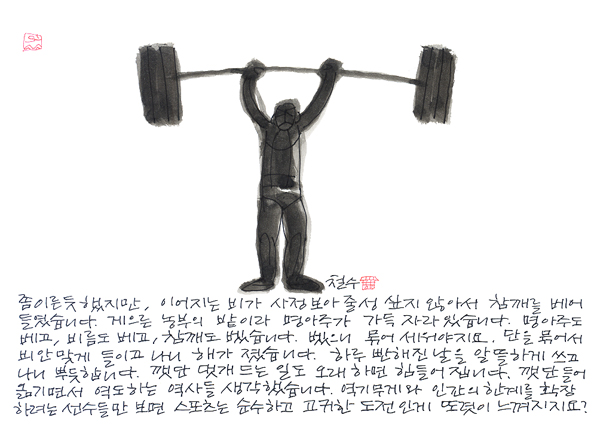 철수
좀 이른듯 했지만, 이어지는 비가 사정 보아 줄성 싶지 않아서 참깨를 베어
들였습니다. 게으른 농부의 밭이라 명아주가 가득 자라 있습니다. 명아주도
베고, 비름도 베고, 참깨도 벴습니다. 벴으니 묶어 세워야지요. 단을 묶어서
비 안 맞게 들이고 나니 해가 졌습니다. 하루 빤해진 날을 알뜰하게 쓰고
나니 뿌듯합니다. 깻단 몇개 드는 일도 오래 하면 힘들어집니다. 깻단 들어
옮기면서 역도하는 역사들 생각했습니다. 역기무게와 인간의 한계를 확장
하려는 선수들만 보면 스포츠는 순수하고 고귀한 도전인게 또렷이 느껴지지요?